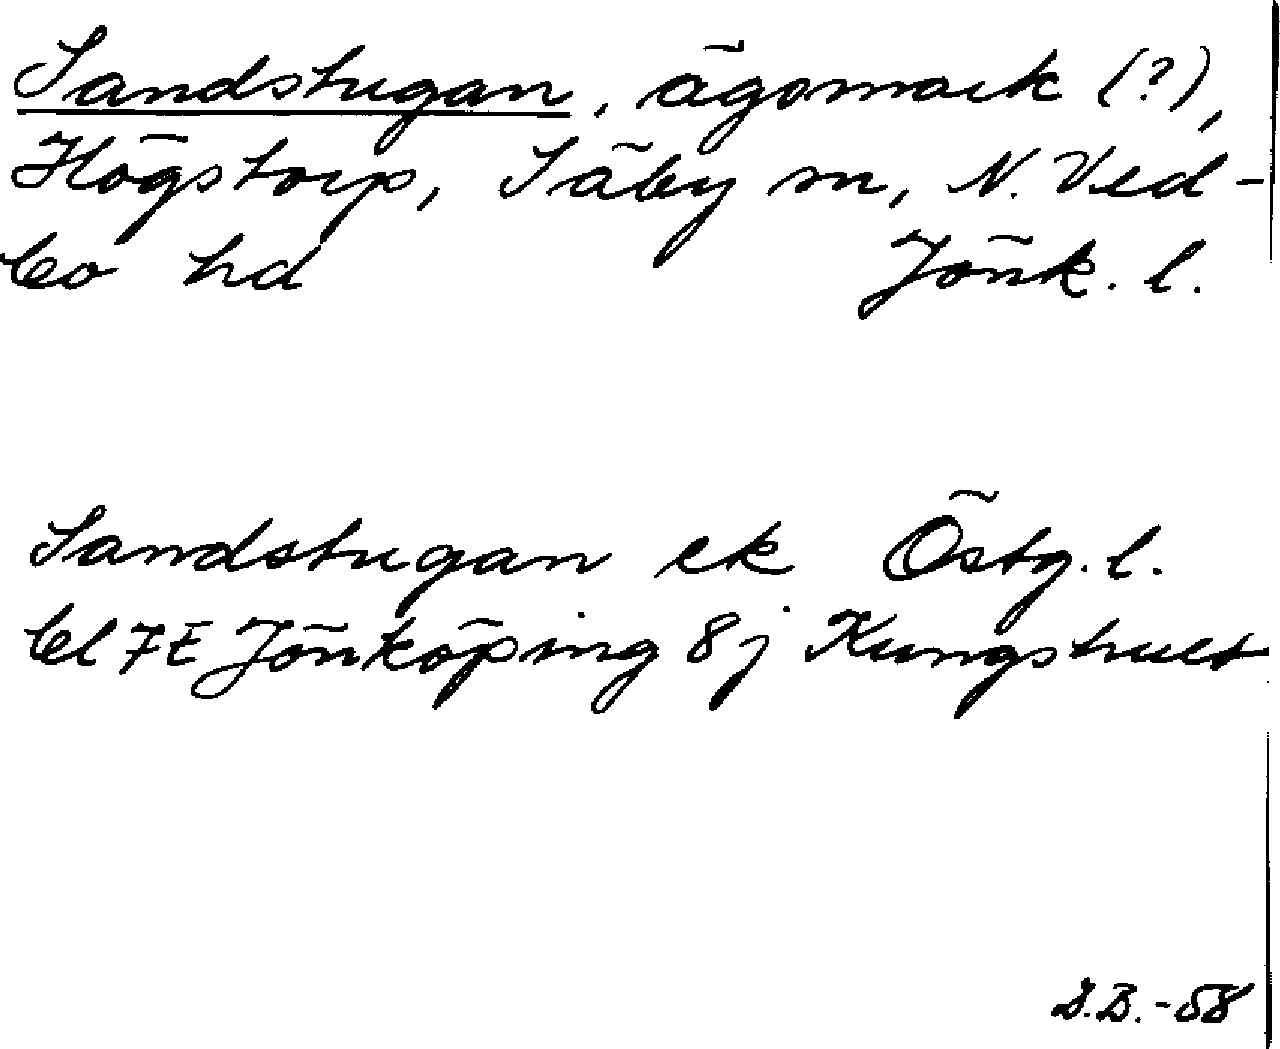 Sandstugan, ägomark (?),
Högstorp, Säby sn, N. Ved-
bo hd Jönk. l.
Sandstugan ek Östg. l.
bl 7E Jönköping 8j Kungshult
D.B. -58